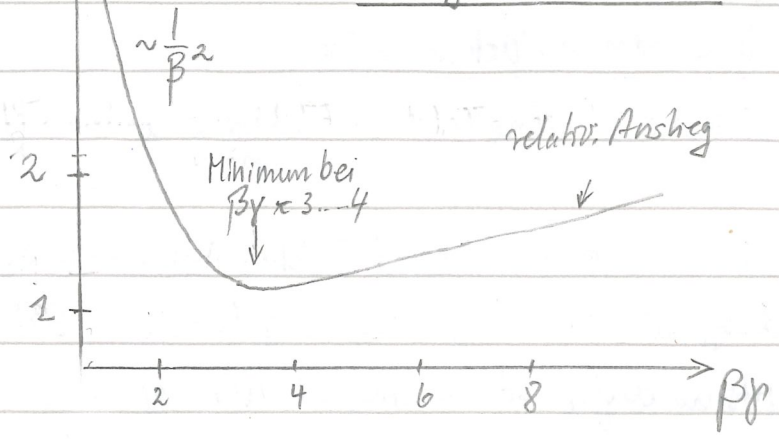 ~ 1/β²
relativ. Anstieg
2
Minimum bei
βγ ≈ 3...4
1
2 4 6 8
βγ